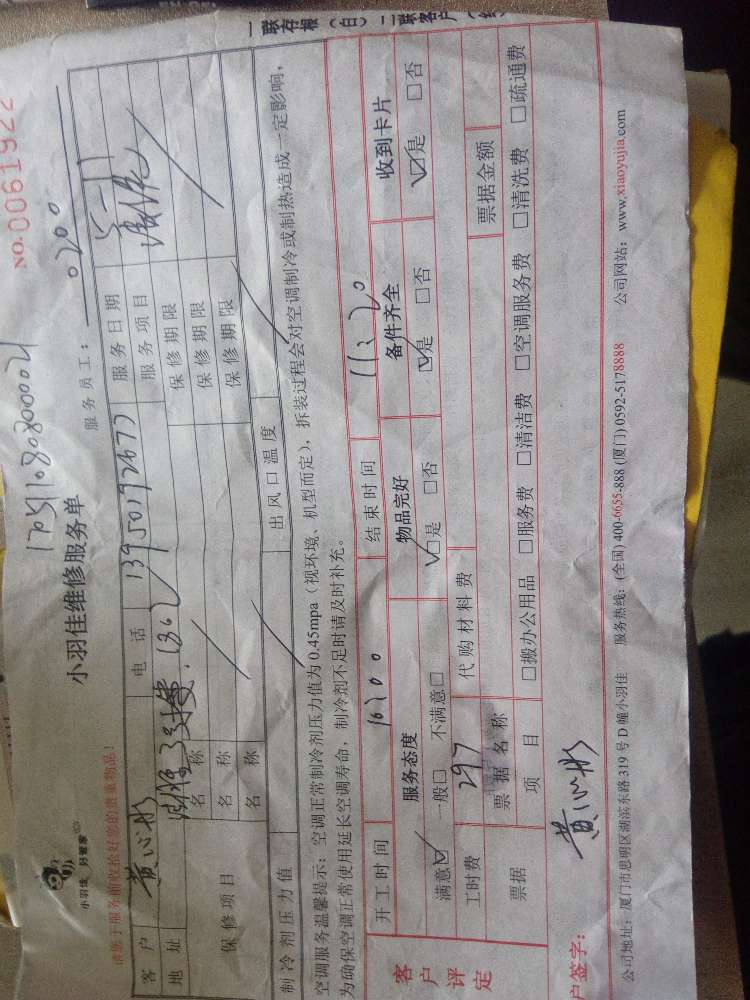 一联存根（白）二联客户（红
NO.0061922
小羽佳 好管家
小羽佳维修服务单
服务员工：0200
请您于服务前收拾好您的贵重物品！
客户 黄心彬 电话 13950192677 服务日期 5-11
地址 3号楼.1302 服务项目
保修项目 名称 保修期限
名称 保修期限
名称 保修期限
制冷剂压力值 出风口温度
空调服务温馨提示：空调正常制冷剂压力值为0.45mpa（视环境、机型而定），拆装过程会对空调制冷或制热造成一定影响，
为确保空调正常使用延长空调寿命，制冷剂不足时请及时补充。
客户评定
开工时间 10:00 结束时间 11:20
服务态度 物品完好 备件齐全 收到卡片
满意☑ 一般□ 不满意□ ☑是 □否 ☑是 □否 ☑是 □否
工时费 297 代购材料费
票据 票据名称 票据金额
项目 □搬办公用品 □服务费 □清洁费 □空调服务费 □清洗费 □疏通费
户签字： 黄心彬
公司地址：厦门市思明区湖滨东路319号D幢小羽佳 服务热线：(全国)400-6655-888 (厦门)0592-5178888 公司网站：www.xiaoyujia.com